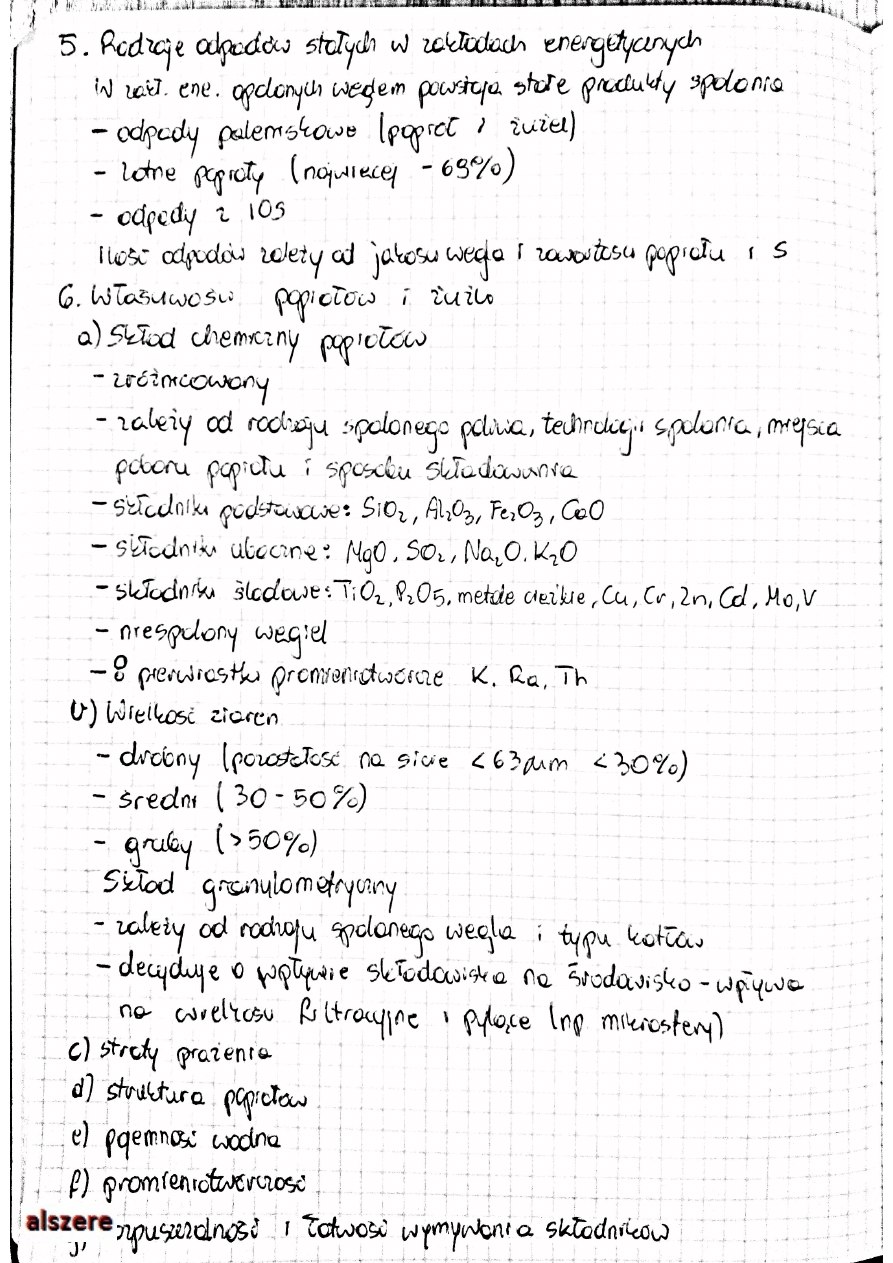 5. Rodzaje odpadów stałych w zakładach energetycznych
W zakł. ene. opalonych węglem powstają stałe produkty spalania
- odpady paleniskowe (popiół i żużel)
- lotne popioły (najwięcej - 69%)
- odpady z IOS
Ilość odpadów zależy od jakości węgla i zawartości popiołu i S
6. Właściwości popiołów i żużlo
a) Skład chemiczny popiołów
- zróżnicowany
- zależy od rodzaju spalonego paliwa, technologii spalania, miejsca
poboru popiołu i sposobu składowania
- składniki podstawowe: SiO2, Al2O3, Fe2O3, CaO
- składniki uboczne: MgO, SO2, Na2O, K2O
- składniki śladowe: TiO2, P2O5, metale ciężkie, Cu, Cr, Zn, Cd, Mo, V
- niespalony węgiel
- pierwiastki promieniotwórcze K, Ra, Th
b) Wielkość ziaren
- drobny (pozostałość na sicie <63μm <30%)
- średni (30-50%)
- gruby (>50%)
Skład granulometryczny
- zależy od rodzaju spalanego węgla i typu kotłów
- decyduje o wpływie składowiska na środowisko - wpływa
na wielkości filtracyjne i pylące (np mikrosfery)
c) straty prażenia
d) struktura popiołów
e) pojemność wodna
f) promieniotwórczość
alszere
rozpuszczalność i łatwość wymywania składników